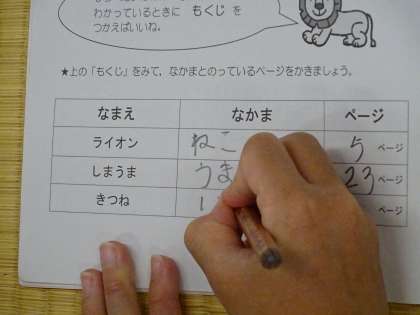 わかっているときに もくじ を
つかえばいいね。
★上の「もくじ」をみて、なかまとのっているページをかきましょう。
なまえ なかま ページ
ライオン ねこ 5 ページ
しまうま うま 23 ページ
きつね ページ